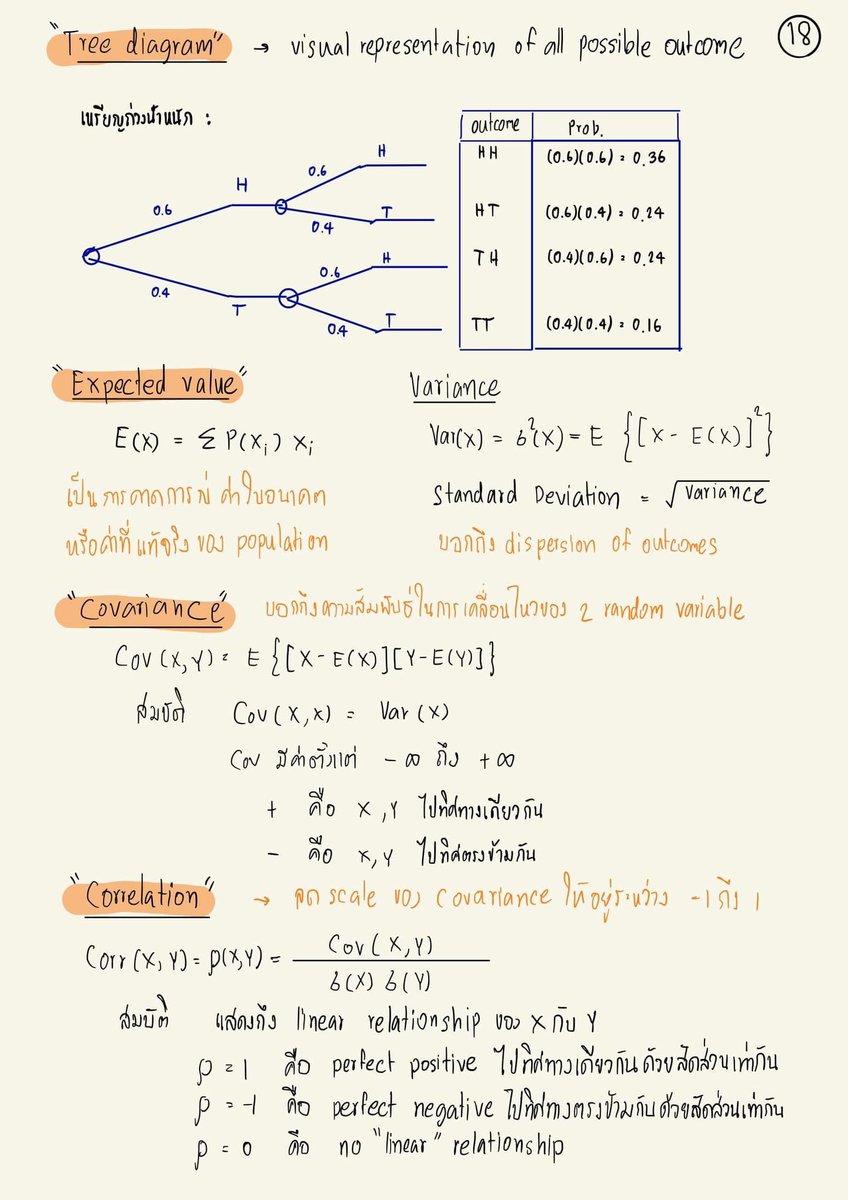 "Tree diagram" → visual representation of all possible outcome
18
เหรียญถ่วงน้ำหนัก :
outcome Prob.
0.6 H 0.6 H HH (0.6)(0.6) = 0.36
0.4 T HT (0.6)(0.4) = 0.24
0.4 T 0.6 H TH (0.4)(0.6) = 0.24
0.4 T TT (0.4)(0.4) = 0.16
"Expected value"
E(X) = Σ P(Xᵢ) Xᵢ
เป็นการคาดการณ์ ค่าในอนาคต
หรือค่าที่แท้จริง ของ population
Variance
Var(X) = σ²(X) = E {[X - E(X)]²}
Standard Deviation = √variance
บอกถึง dispersion of outcomes
"Covariance" บอกถึงความสัมพันธ์ในการเคลื่อนไหวของ 2 random variable
Cov (X,Y) = E {[X-E(X)][Y-E(Y)]}
สมบัติ Cov(X,X) = Var(X)
Cov มีค่าตั้งแต่ -∞ ถึง +∞
+ คือ X,Y ไปทิศทางเดียวกัน
- คือ X,Y ไปทิศตรงข้ามกัน
"Correlation" → ลด scale ของ covariance ให้อยู่ระหว่าง -1 ถึง 1
Corr(X,Y) = ρ(X,Y) = Cov(X,Y) / σ(X) σ(Y)
สมบัติ แสดงถึง linear relationship ของ X กับ Y
ρ = 1 คือ perfect positive ไปทิศทางเดียวกันด้วยสัดส่วนเท่ากัน
ρ = -1 คือ perfect negative ไปทิศทางตรงข้ามกันด้วยสัดส่วนเท่ากัน
ρ = 0 คือ no "linear" relationship